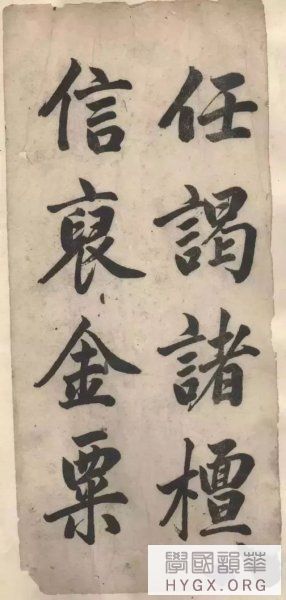 任謁諸檀
信裒金粟
華韻國學
HYGX.ORG